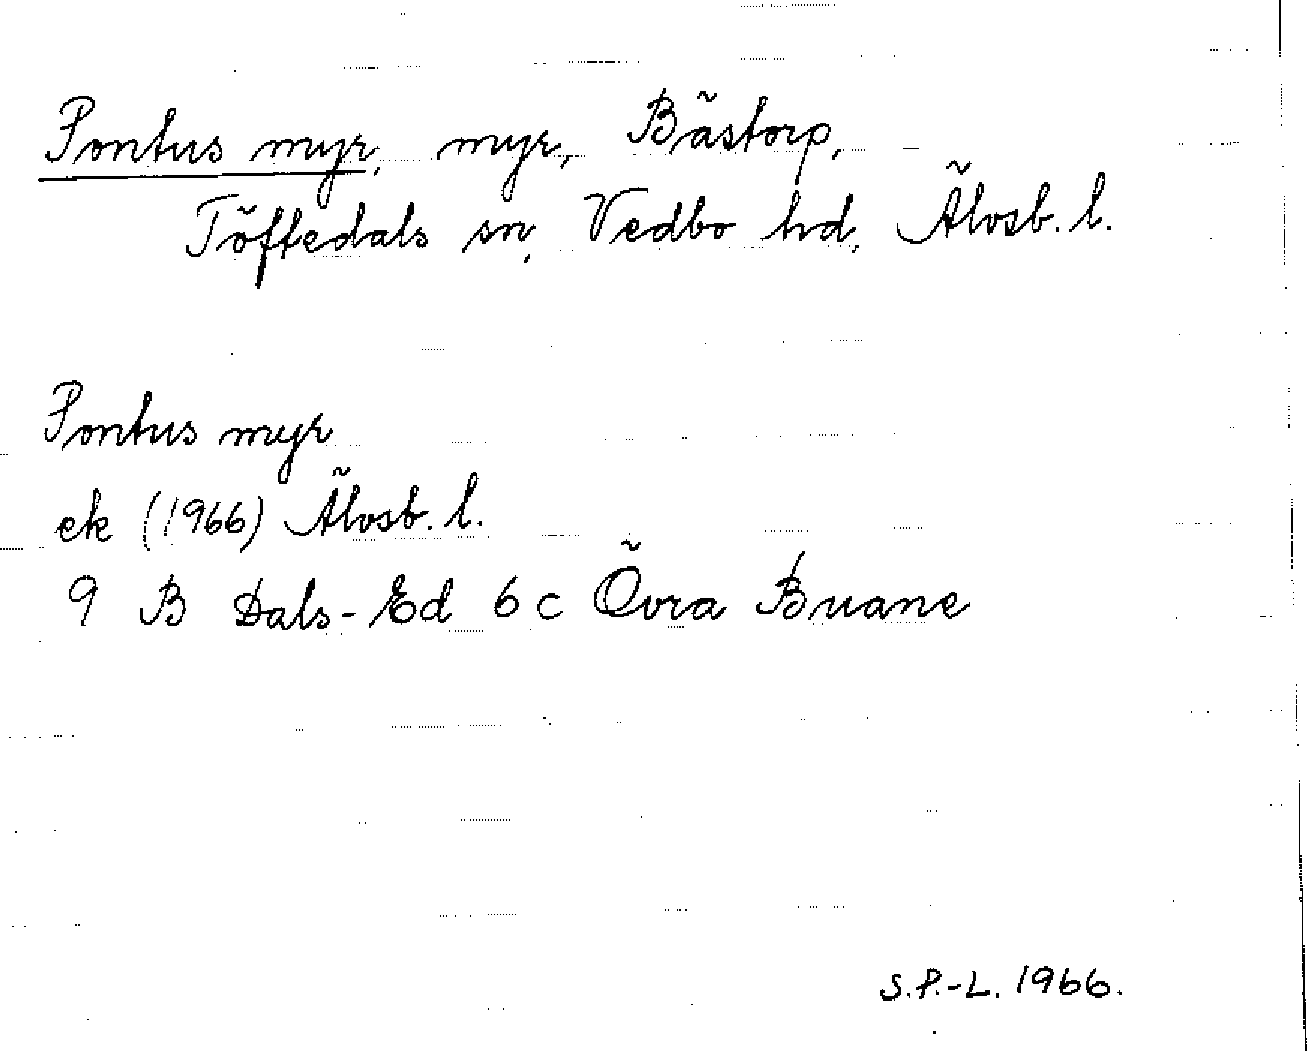 Pontus myr, myr, Bästorp,
Töftedals sn, Vedbo hd, Älvsb. l.
Pontus myr
ek (1966) Älvsb. l.
9 B Dals-Ed 6 c Övra Buane
S.P.-L. 1966.